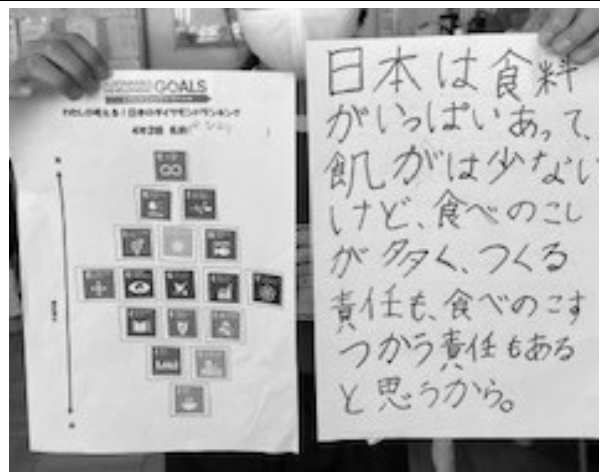 GOALS
わたしが考える!日本のダイヤモンドランキング
4年2組 名前
日本は食料
がいっぱいあって、
飢がは少ない
けど、食べのこし
が多く、つくる
責任も、食べのこす
つかう責任もある
と思うから。